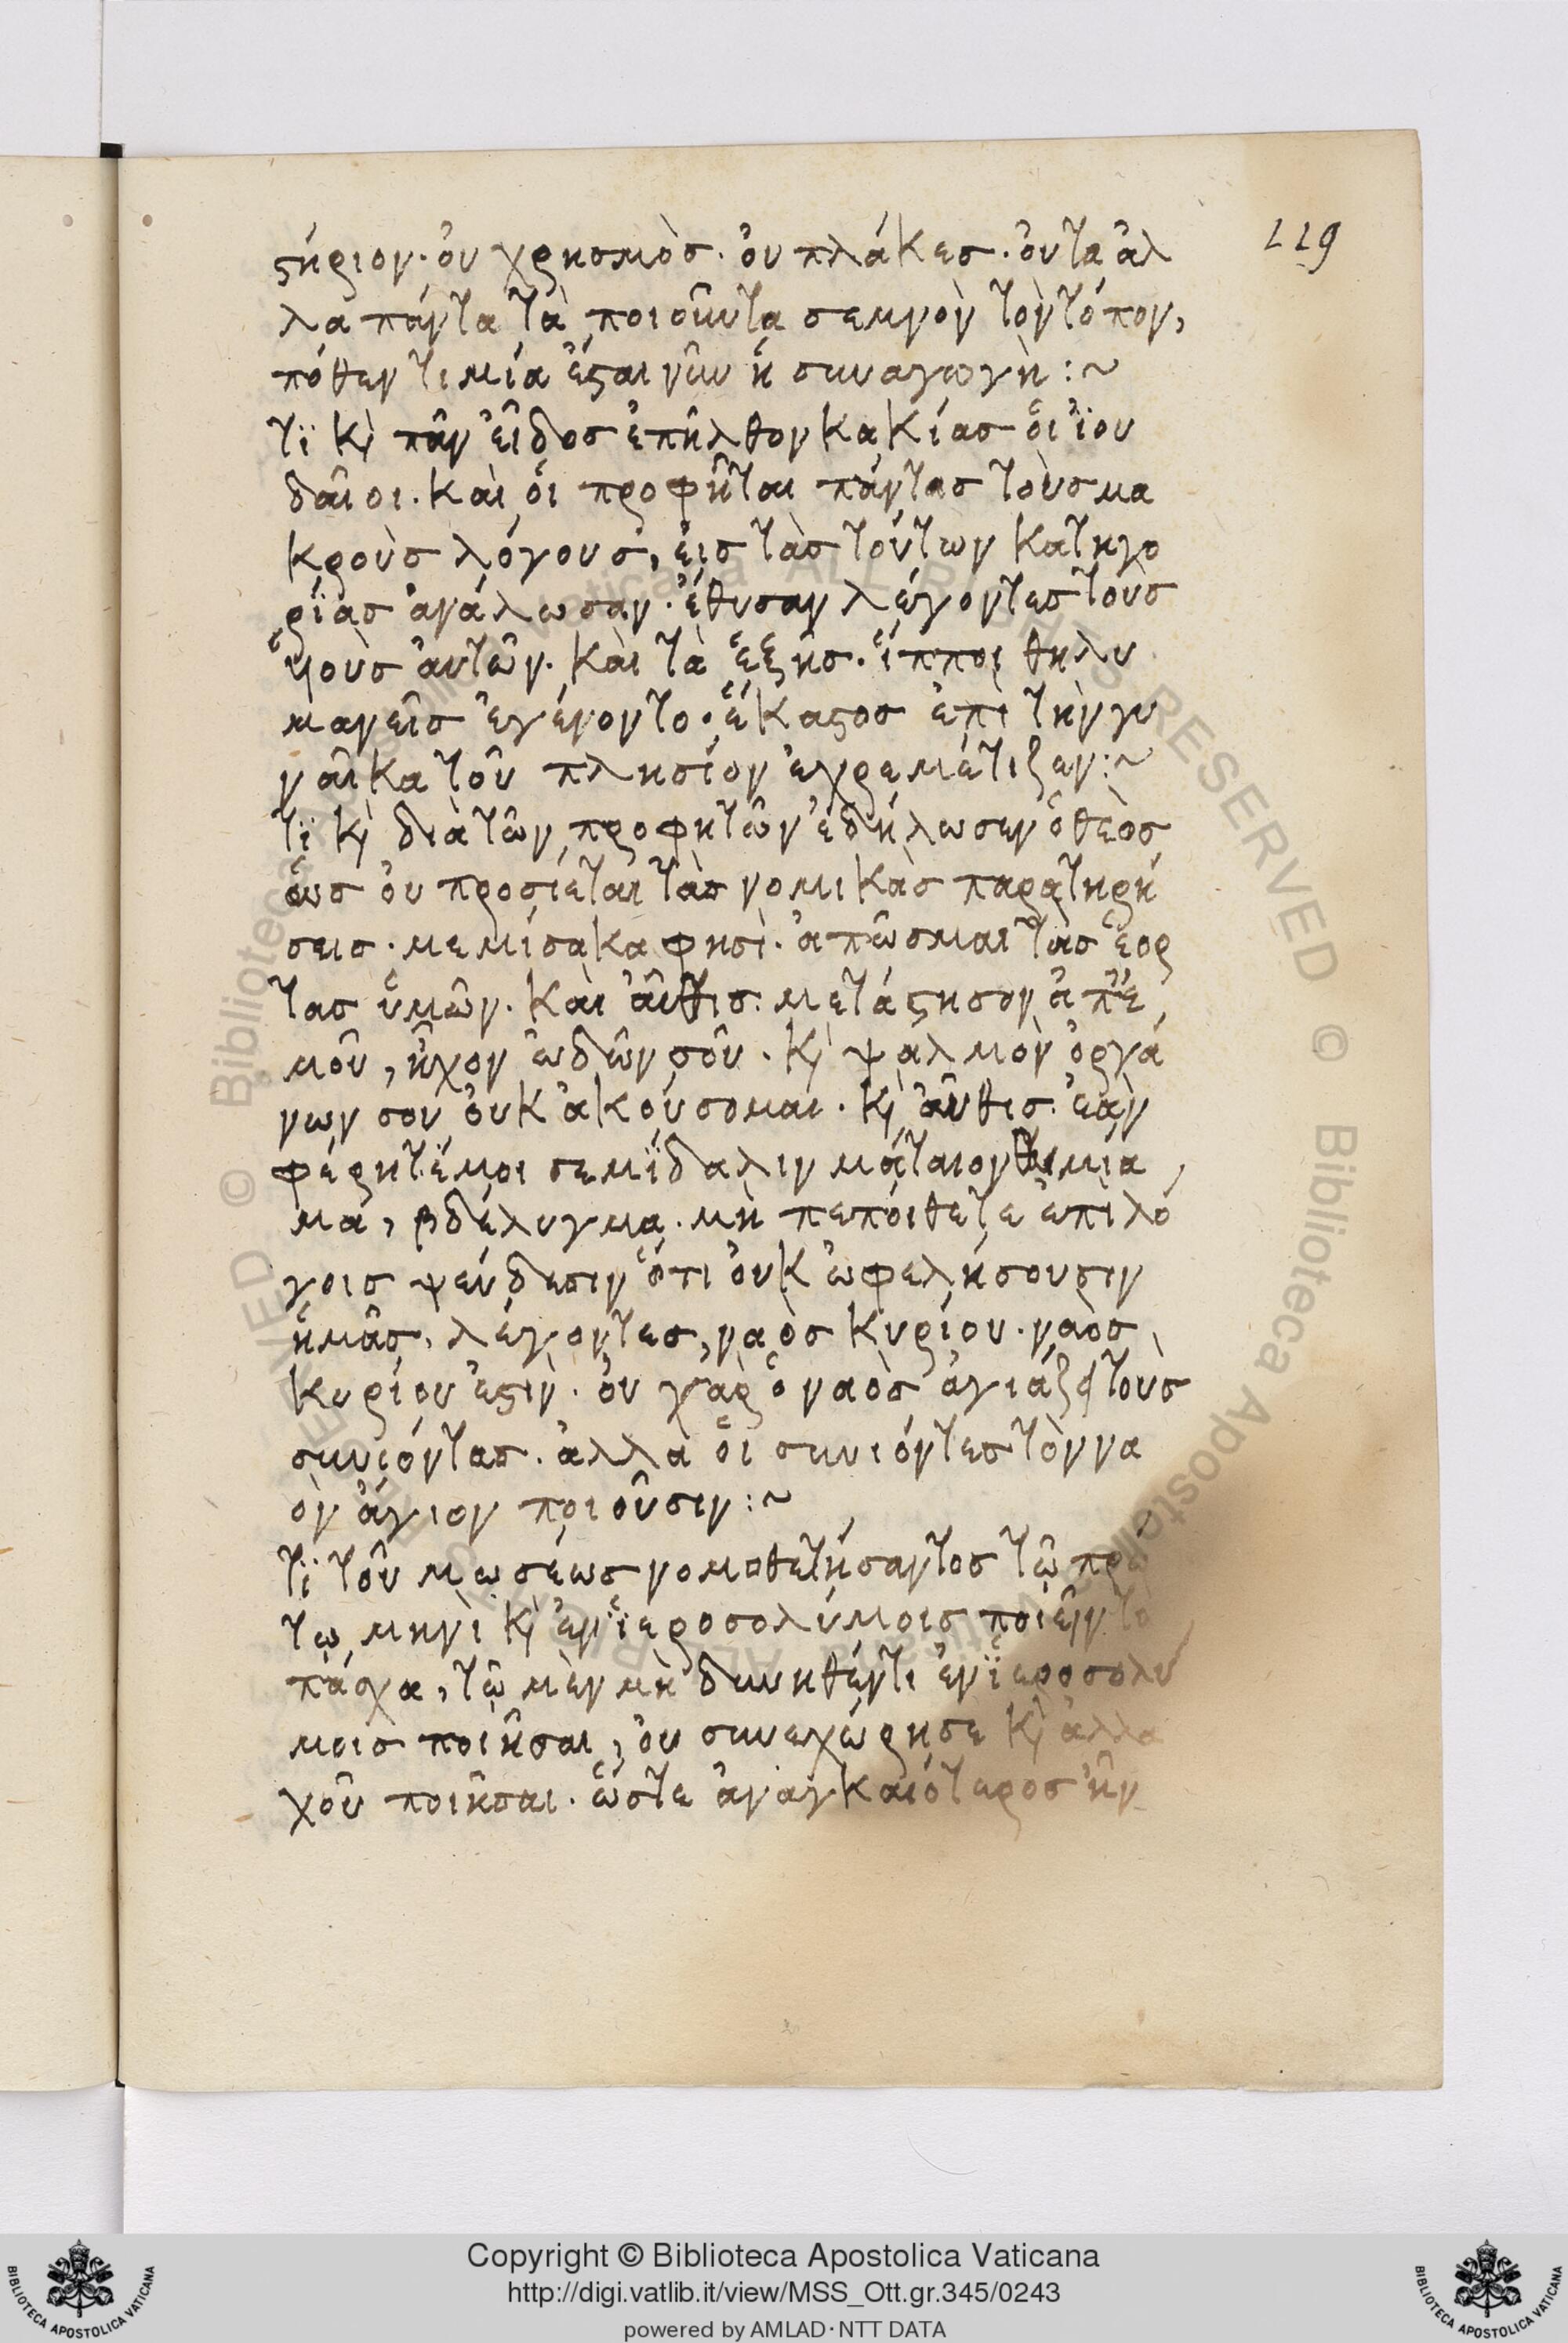 119
στήριον· οὐ χρησμὸσ· οὐ πλάκεσ· οὐ τα ἀλ
λα πάντα τὰ ποιοῦντα σεμνὸν τὸν τόπον,
πόθεν τιμία ἔσται νῦν ἡ συναγωγὴ:~
Τϊ κὶ πᾶν εἶδοσ ἐπῆλθον κακίασ οἱ ἰου
δαῖοι. καὶ οἱ προφῆται πάντασ τοὺσ μα
κροὺσ λόγουσ, εἰσ τὰσ τούτων κατηγο
ρίασ ἀνάλωσαν· ἔθυσαν λέγοντεσ τοὺσ
ὑιοὺσ ἀυτῶν. καὶ τὰ ἑξῆσ. ἵπποι θηλυ
μανεῖσ ἐγένοντο. ἕκαστοσ ἐπὶ τὴν γυ
ναῖκα τοῦ πλησίον ἐχρεμέτιζεν:~
Τϊ κὶ διὰ τῶν προφητῶν ἐδήλωσεν ὁ θεὸσ
ὡσ οὐ προσίεται τὰσ νομικὰσ παρατηρή
σεισ. μεμίσηκα φησὶ. ἀπῶσμαι τὰσ ἑορ
τασ ὑμῶν. καὶ ἀῦθισ. μετάστησον ἀπ' ἐ
μοῦ, ἦχον ὠδῶν σοῦ. κὶ ψαλμὸν ὀργά
νων σου οὐκ ἀκούσομαι. κὶ ἀῦθισ. ἐὰν
φέρητέ μοι σεμίδαλιν μάταιον θυμία
μα, βδέλυγμα. μὴ πεποίθετε ἐπὶ λό
γοισ ψεύδεσιν ὅτι οὐκ ὠφελήσουσιν
ἡμᾶσ, λέγοντεσ, ναὸσ κυρίου. ναὸσ
κυρίου ἐστὶν. οὐ γὰρ ὁ ναὸσ ἁγιάζει τοὺσ
συνιόντασ. ἀλλὰ οἱ συνιόντεσ τὸν να
ὸν ἅγιον ποιοῦσιν:~
Τϊ τοῦ μωσέωσ νομοθετήσαντοσ τῶ πρώ
τω μηνὶ κὶ ἐν ἱεροσολύμοισ ποιεῖν τὸ
πάσχα, τῶ μὲν μὴ δυνηθέντι ἐν ἱεροσολύ
μοισ ποιῆσαι, οὐ συνεχώρησε κὶ ἀλλα
χοῦ ποιῆσαι. ὥστε ἀναγκαιότεροσ ἦν
Copyright © Biblioteca Apostolica Vaticana
http://digi.vatlib.it/view/MSS_Ott.gr.345/0243
powered by AMLAD·NTT DATA